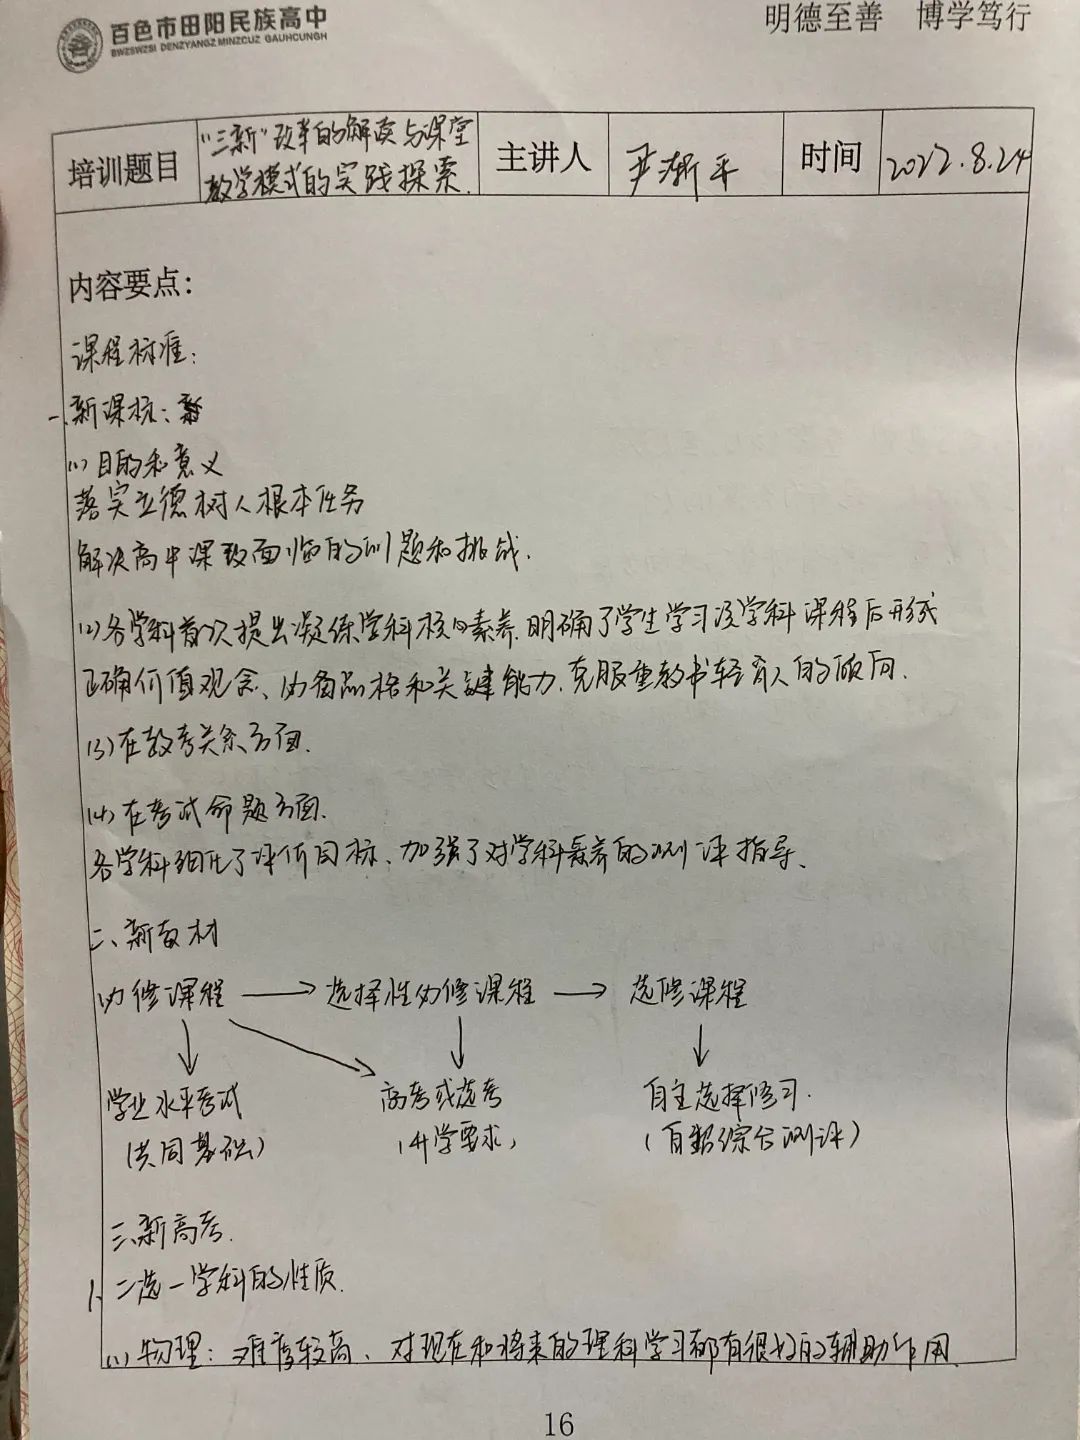 百色市田阳民族高中
BWZSWZSI DENZYANGZ MINZCUZ GAUHCUNGH
明德至善 博学笃行
培训题目
"三新"改革的解读与课堂
教学模式的实践探索.
主讲人
尹渐平
时间
2022.8.24
内容要点：
课程标准：
一、新课标：新
(1)目的和意义
落实立德树人根本任务
解决高中课改面临的问题和挑战.
(2)各学科首次提出凝练学科核心素养.明确了学生学习该学科课程后形成
正确价值观念、必备品格和关键能力.克服重教书轻育人的倾向.
(3)在教考关系方面.
(4)在考试命题方面.
各学科细化了评价目标、加强了对学科素养的测评指导、
二、新教材
必修课程 → 选择性必修课程 → 选修课程
学业水平考试 高考或选考 自主选择修习.
(共同基础) (升学要求) (自招综合测评)
三、新高考.
1、二选一学科的性质.
(1)物理：难度较高、对现在和将来的理科学习都有很好的辅助作用.
16